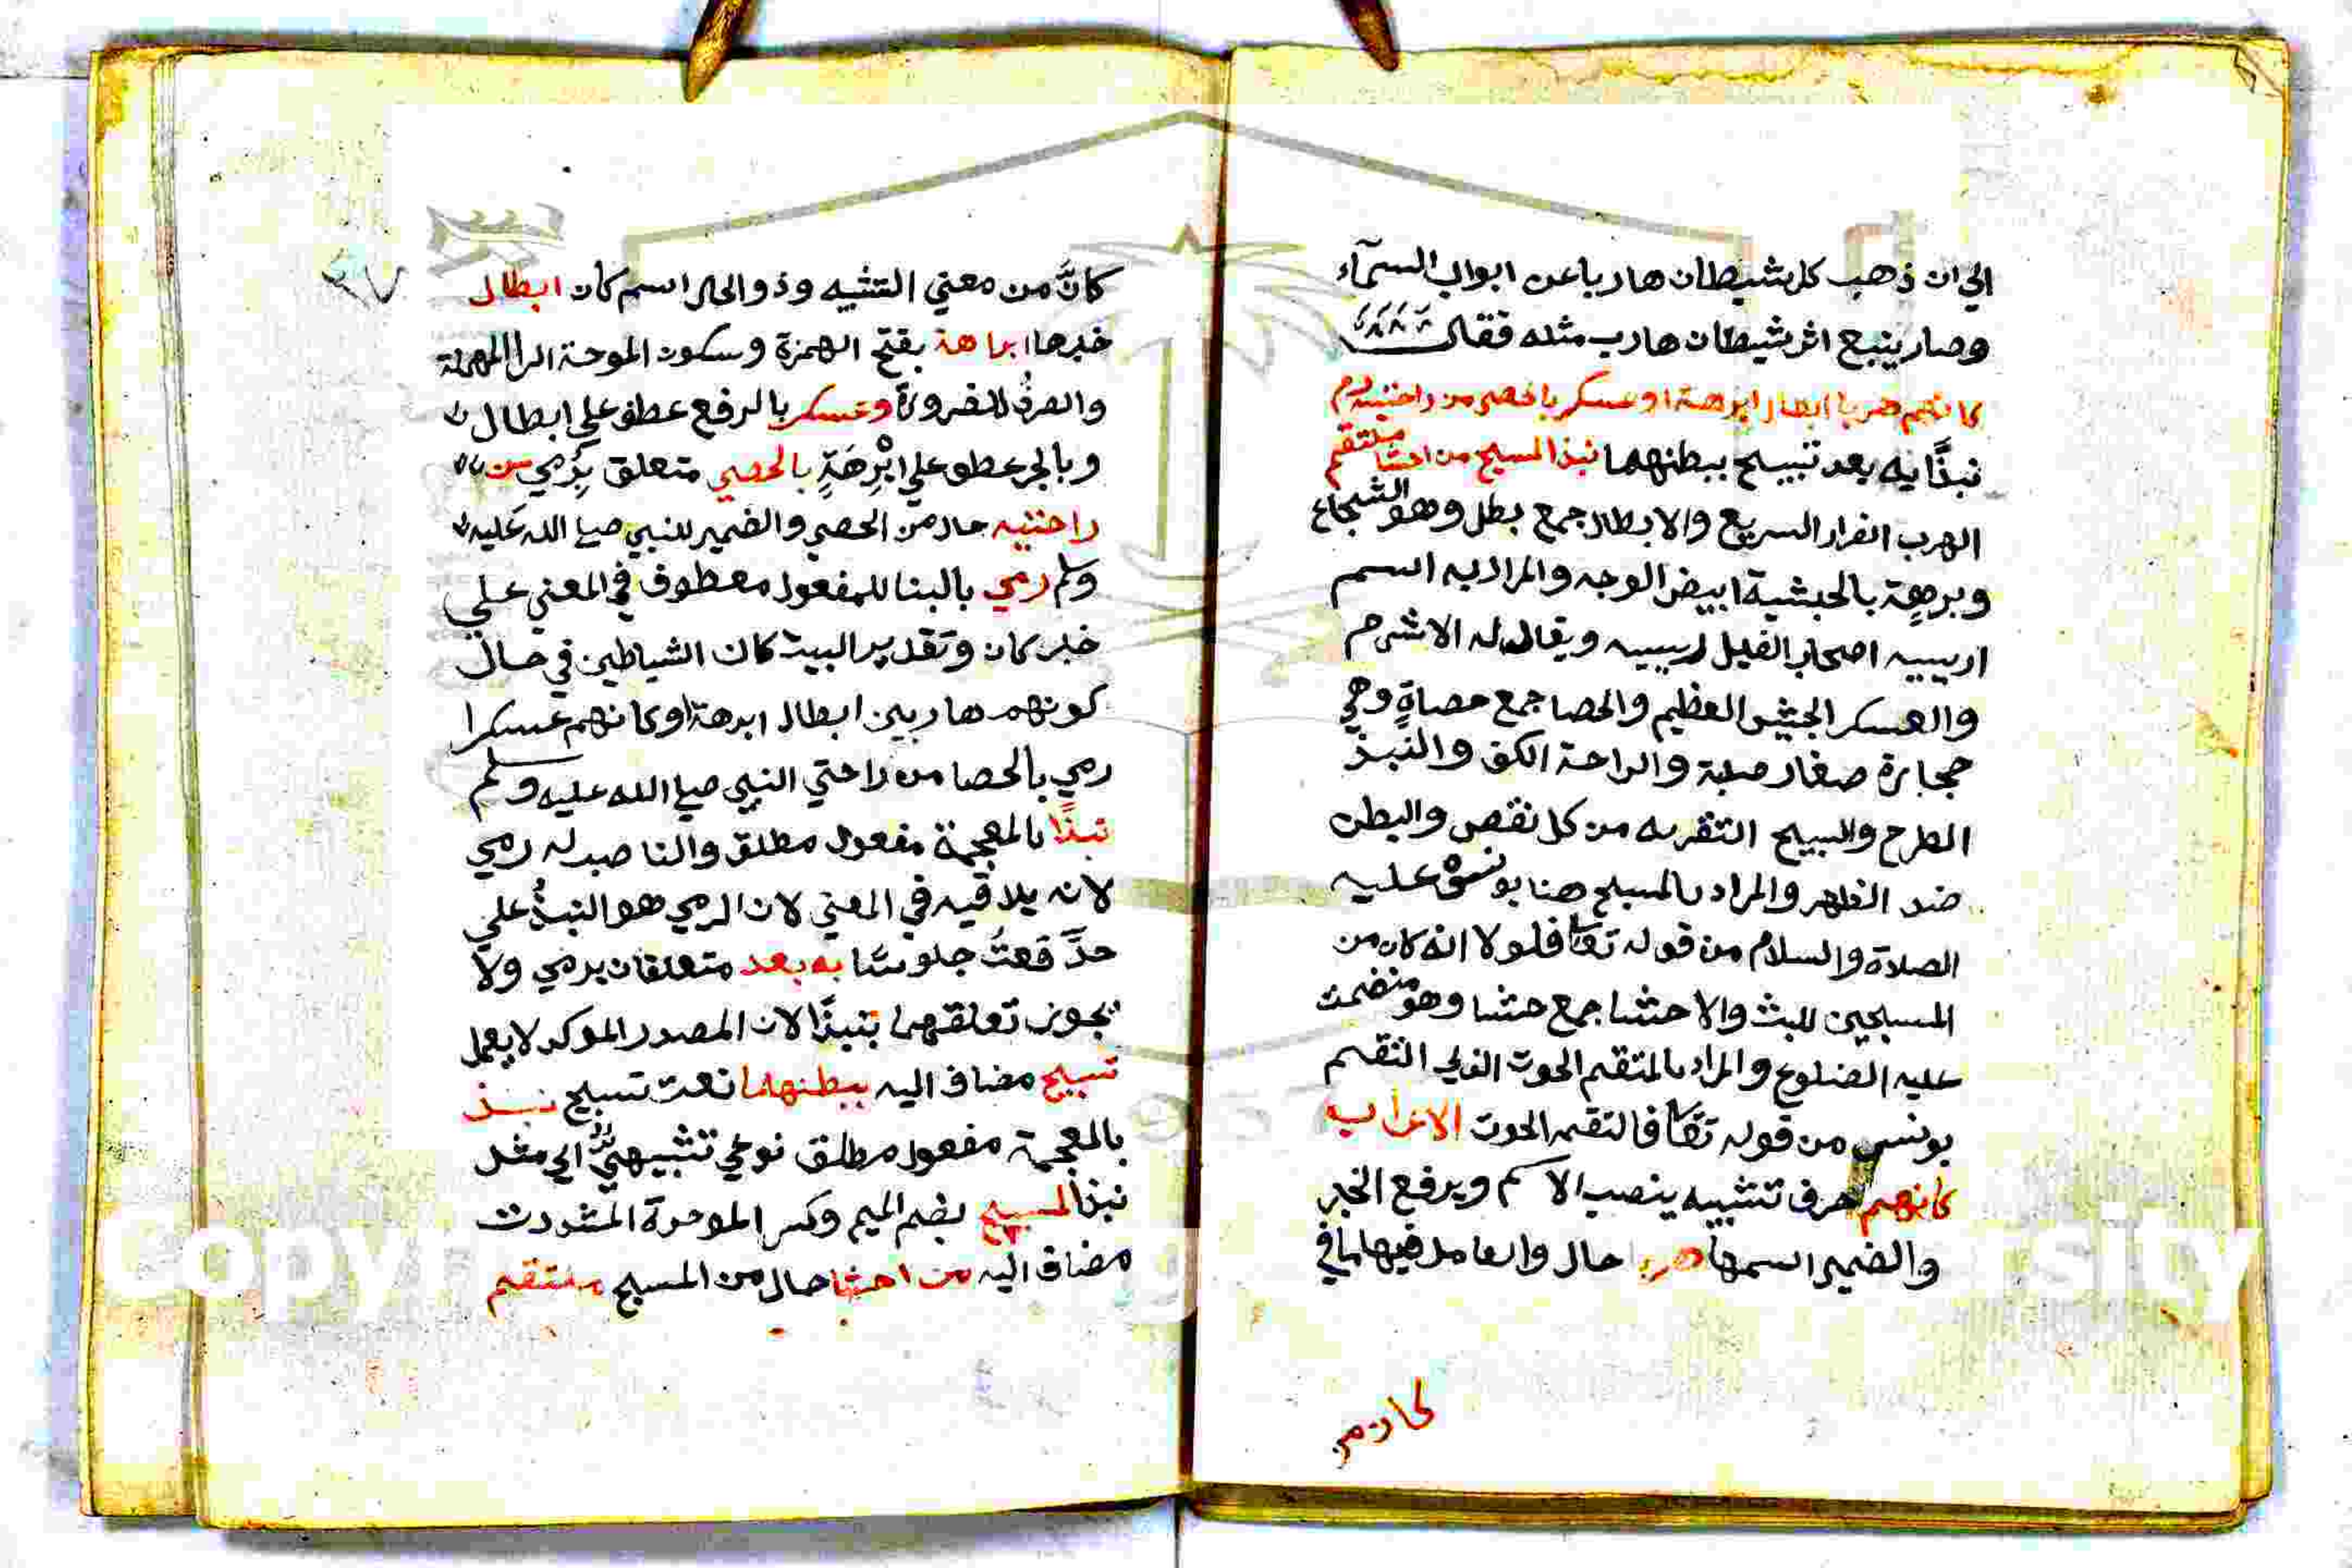 الي ان ذهب كل شيطان هاربا عن ابواب السمآء
وصار يتبع اثر شيطان هارب مثله فقال
كانهم هربا ابطال ابرهة او عسكر بالحصي من راحتيه رم
نبذًا به بعد تسبيح ببطنهما نبذ المسبح من احشا ملتقم
الهرب الفرار السريع والابطال جمع بطل وهو الشجاع
وبرهة بالحبشية ابيض الوجه والمراد به اسم
اصحاب الفيل ويقال له الاشرم
والعسكر الجيش العظيم والحصا جمع حصاةٍ وهي
حجارة صغار صلبة والراحة الكف والنبذ
الطرح والتسبيح من كل نقص والبطن
ضد الظهر والمراد بالمسبح هنا يونس عليه
الصلاة والسلام من قوله تعا فلولا انه كان من
المسبحين للبث والاحشا جمع حشا وهو منضمت
عليه الضلوع والمراد بالملتقم الحوت الذي التقم
يونس من قوله تعا فالتقمه الحوت الاعراب
كانهم حرف تشبيه ينصب الاسم ويرفع الخبر
والضمير اسمها هربا حال والعامل فيها ما في
كان من
كانَّ من معني التشبيه وذو الحال اسم كان ابطال
خبرها ابرهة بفتح الهمزة وسكون الموحة الرا المهملة
والصرفُ للضرورة وعسكر بالرفع عطف علي ابطال
وبالجر عطف علي ابْرِهَةٍ بالحصي متعلق بِرُمي من
راحتيه حال من الحصي والضمير للنبي صلي الله عليه
وسلم رمي بالبنا للمفعول معطوف في المعني علي
خبر كان وتقدير البيت كان الشياطين في حال
كونهم هاربين ابطال ابرهة او كانهم عسكرا
رمي بالحصا من راحتي النبي صلي الله عليه وسلم
نبذًا بالمعجمة مفعول مطلق والناصب له رمي
لانه يلاقيه في المعني لان الرمي هو النبذُ علي
حدَّ قعدتُ جلوسًا به بعد متعلقان برمي ولا
يجوز تعلقهما بنبذًا لان المصدر الموكد لا يعمل
تسبيح مضاف اليه ببطنهما نعت تسبيح نبذ
بالمعجمة مفعول مطلق نوعي تشبيهيٌّ اي مثل
نبذ المسبح بضم الميم وكسر الموحدة المشددت
مضاف اليه من احشا حال من المسبح ملتقم